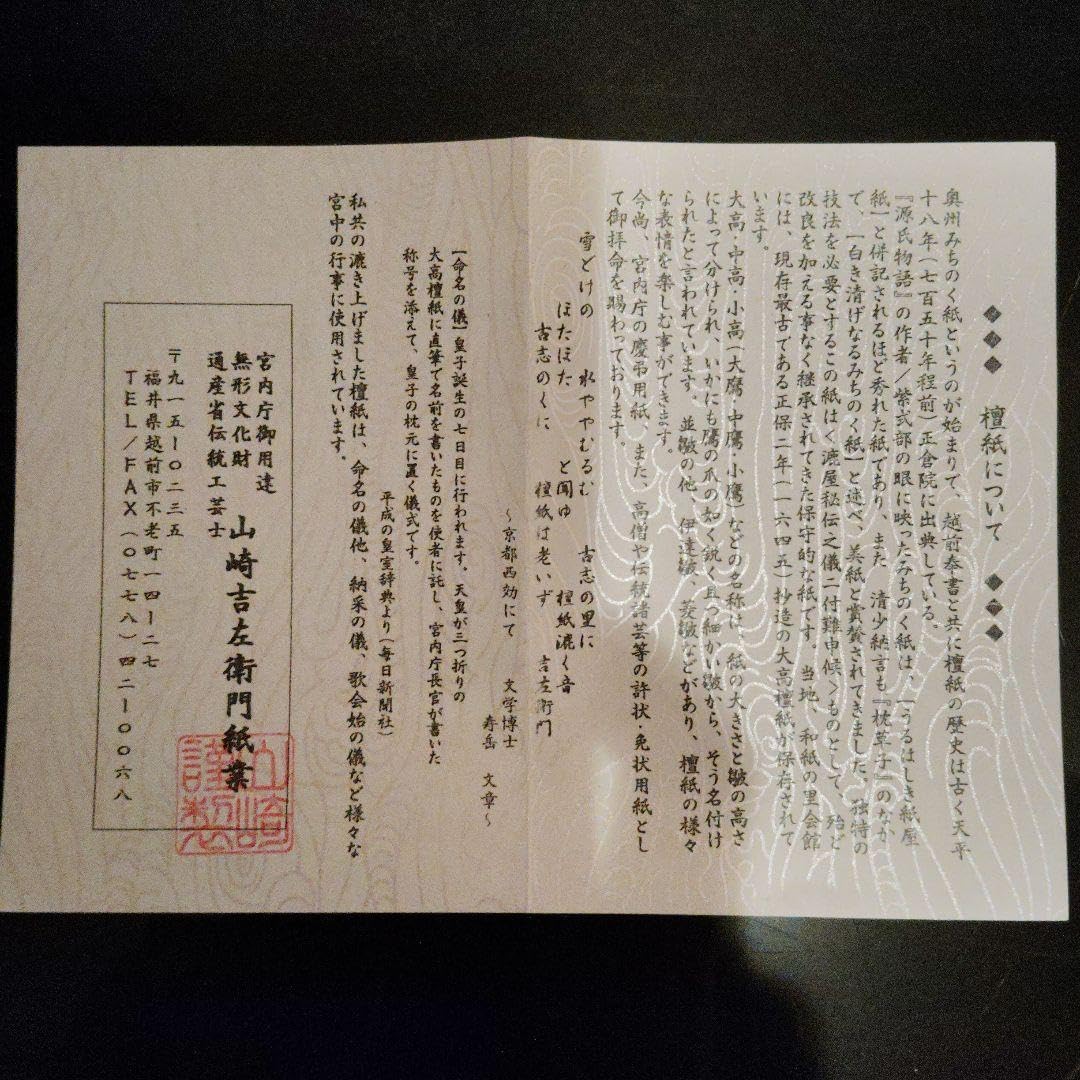 檀紙について
奥州みちのく紙というのが始まりて、越前奉書と共に檀紙の歴史は古く天平
十八年(七百五十年程前)正倉院に出典している。
『源氏物語』の作者/紫式部の眼に映ったみちのく紙は、「うるはしき紙屋
紙」と併記されるほど秀れた紙であり、また 清少納言も『枕草子』のなか
で、「白き清げなるみちのく紙」と述べ、美紙と賞賛されてきました。独特の
技法を必要とするこの紙は<漉屋秘伝之儀二付難申候>ものとして、殆ど
改良を加える事なく継承されてきた保守的な紙です。当地、和紙の里会館
には、現存最古である正保二年(一六四五)抄造の大高檀紙が保存されて
います。
大高・中高・小高(大鷹・中鷹・小鷹)などの名称は、紙の大きさと皺の高さ
によって分けられ、いかにも鷹の爪の如く鋭く且つ細かい皺から、そう名付け
られたと言われています。並皺の他、伊達皺、菱皺などがあり、檀紙の様々
な表情を楽しむ事ができます。
今尚、宮内庁の慶弔用紙、また、高僧や伝統諸芸等の許状・免状用紙とし
て御拝命を賜わっております。
雪どけの 水ややむるむ 古志の里に
ほたほた と聞ゆ 檀紙漉く音
古志のくに 檀紙は老いず 吉左衛門
~京都西効にて 文学博士
寿岳 文章~
【命名の儀】皇子誕生の七日目に行われます。天皇が三つ折りの
大高檀紙に直筆で名前を書いたものを使者に託し、宮内庁長官が書いた
称号を添えて、皇子の枕元に置く儀式です。
平成の皇室辞典より(毎日新聞社)
私共の漉き上げました檀紙は、命名の儀他、納采の儀、歌会始の儀など様々な
宮中の行事に使用されています。
宮内庁御用達
無形文化財
通産省伝統工芸士
山崎吉左衛門紙業
〒九一五-〇二三五
福井県越前市不老町一四-二七
TEL/FAX(〇七七八)四二-〇〇六八
山崎
謹製